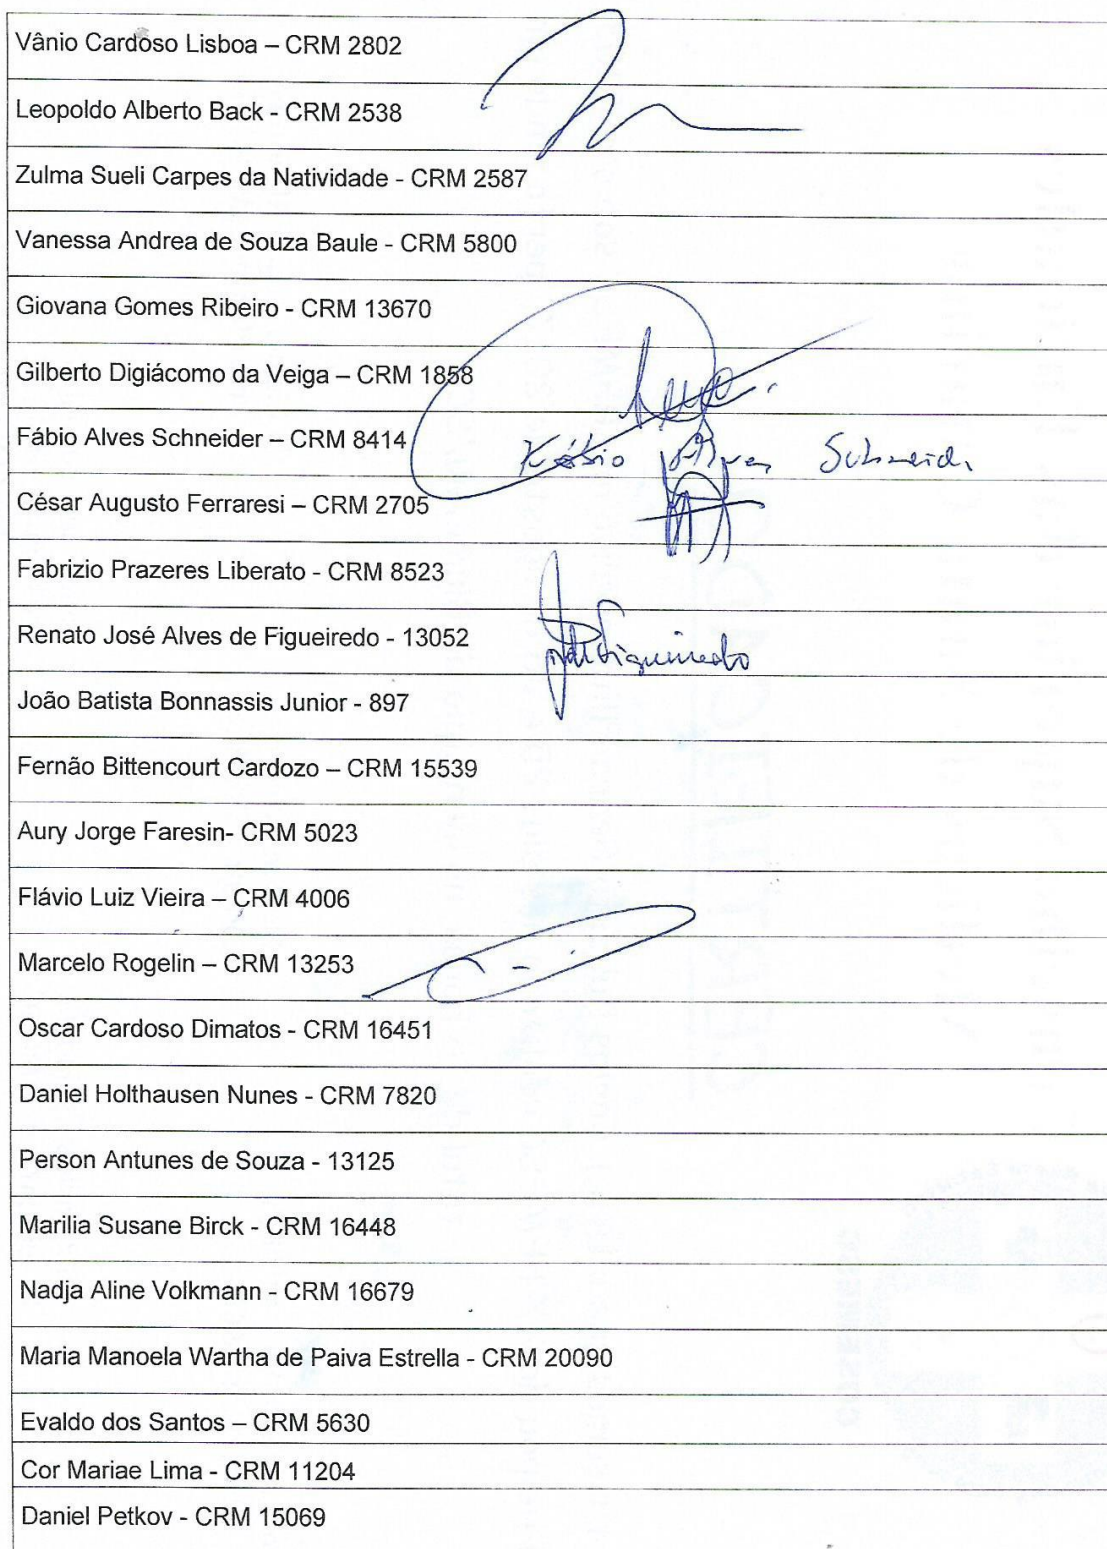 Vânio Cardoso Lisboa – CRM 2802
Leopoldo Alberto Back - CRM 2538
Zulma Sueli Carpes da Natividade - CRM 2587
Vanessa Andrea de Souza Baule - CRM 5800
Giovana Gomes Ribeiro - CRM 13670
Gilberto Digiácomo da Veiga – CRM 1858
Fábio Alves Schneider – CRM 8414 Fábio Alves
César Augusto Ferraresi – CRM 2705
Fabrizio Prazeres Liberato - CRM 8523
Renato José Alves de Figueiredo - 13052
João Batista Bonnassis Junior - 897
Fernão Bittencourt Cardozo – CRM 15539
Aury Jorge Faresin- CRM 5023
Flávio Luiz Vieira – CRM 4006
Marcelo Rogelin – CRM 13253
Oscar Cardoso Dimatos - CRM 16451
Daniel Holthausen Nunes - CRM 7820
Person Antunes de Souza - 13125
Marilia Susane Birck - CRM 16448
Nadja Aline Volkmann - CRM 16679
Maria Manoela Wartha de Paiva Estrella - CRM 20090
Evaldo dos Santos – CRM 5630
Cor Mariae Lima - CRM 11204
Daniel Petkov - CRM 15069